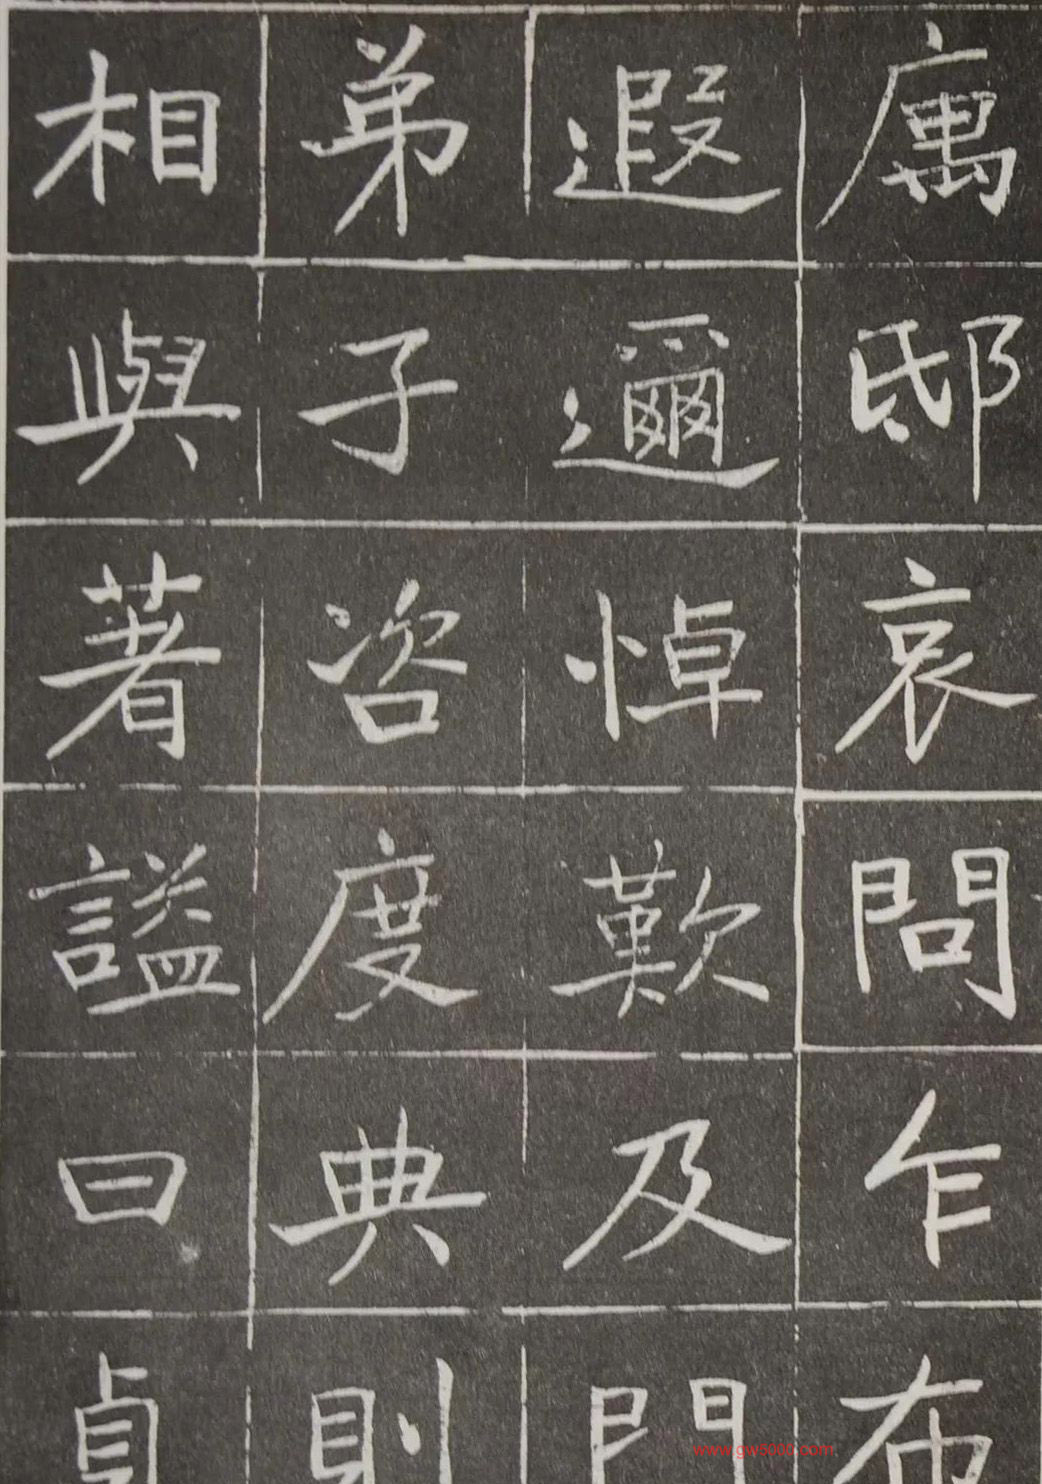 厲邸哀問乍布
遐邇悼歎及門
弟子咨度典則
相與著謚曰貞
www.gw5000.com